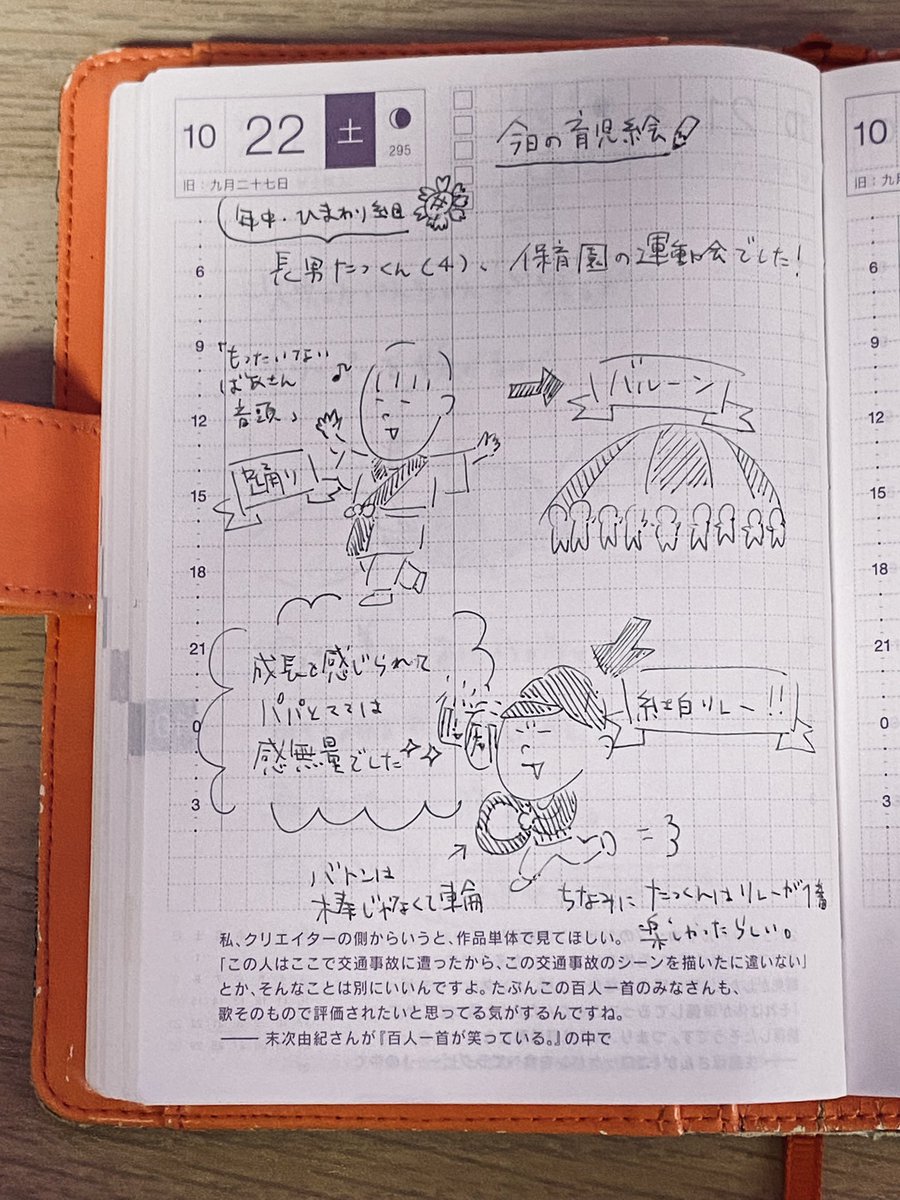 10 22 土
295
旧:九月二十七日
今日の育児絵
年中・ひまわり組
長男たっくん(4)、保育園の運動会でした!
「もったいない
ばあさん
音頭」
踊り
バルーン
紅白リレー!!
成長を感じられて
パパとママは
感無量でした
バトンは
棒じゃなくて輪
ちなみに たっくんはリレーが1番
楽しかったらしい。
6
9
12
15
18
21
0
3
私、クリエイターの側からいうと、作品単体で見てほしい。
「この人はここで交通事故に遭ったから、この交通事故のシーンを描いたに違いない」
とか、そんなことは別にいいんですよ。たぶんこの百人一首のみなさんも、
歌そのもので評価されたいと思ってる気がするんですね。
── 末次由紀さんが『百人一首が笑っている。』の中で
10
旧:九月
6
9
12
15
18
21
0
3